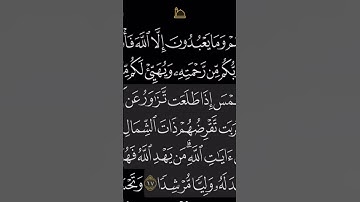 هُمْ وَمَا يَعْبُدُونَ إِلَّا ٱللَّهَ فَأْ
بُّكُم مِّن رَّحْمَتِهِۦ وَيُهَيِّئْ لَكُم مِّ
مْسَ إِذَا طَلَعَت تَّزَٰوَرُ عَن كَ
رَبَت تَّقْرِضُهُمْ ذَاتَ ٱلشِّمَالِ
ءَايَٰتِ ٱللَّهِۗ مَن يَهْدِ ٱللَّهُ فَهُ
دَ لَهُۥ وَلِيًّا مُّرْشِدًا ١٧ وَتَحْ